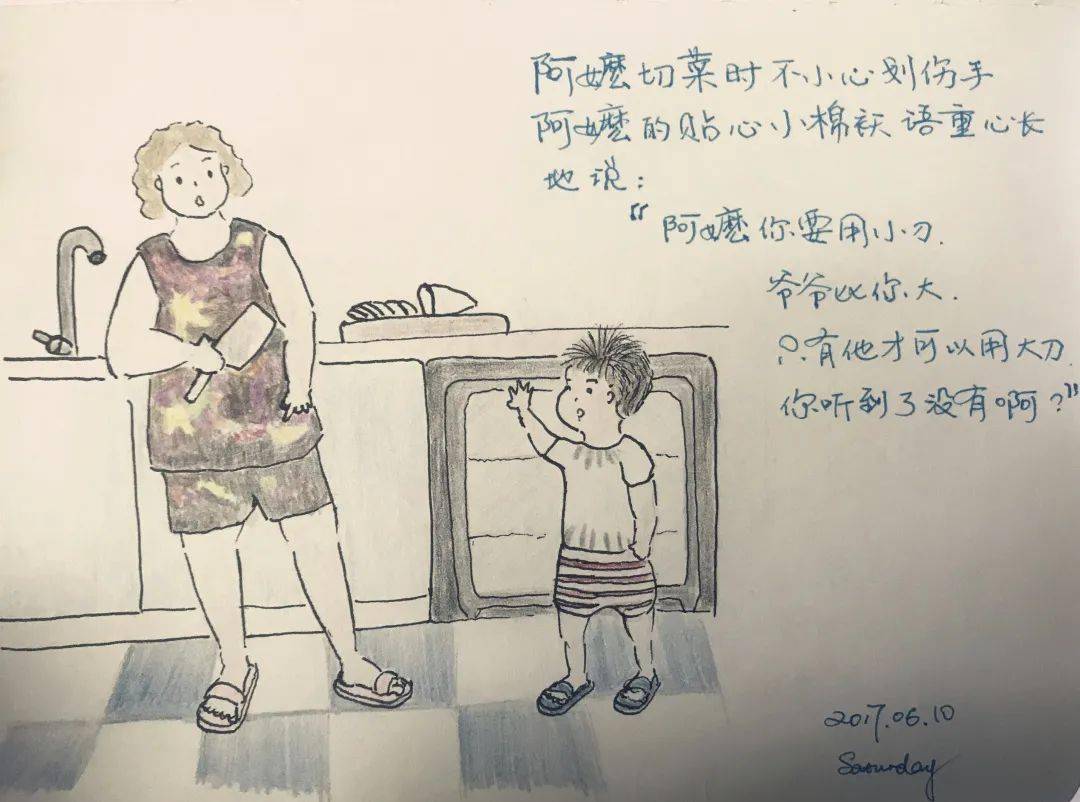 阿嬷切菜时不小心划伤手
阿嬷的贴心小棉袄语重心长
地说：
“阿嬷你要用小刀.
爷爷比你大.
只有他才可以用大刀.
你听到了没有啊？”
2017.06.10
Saturday